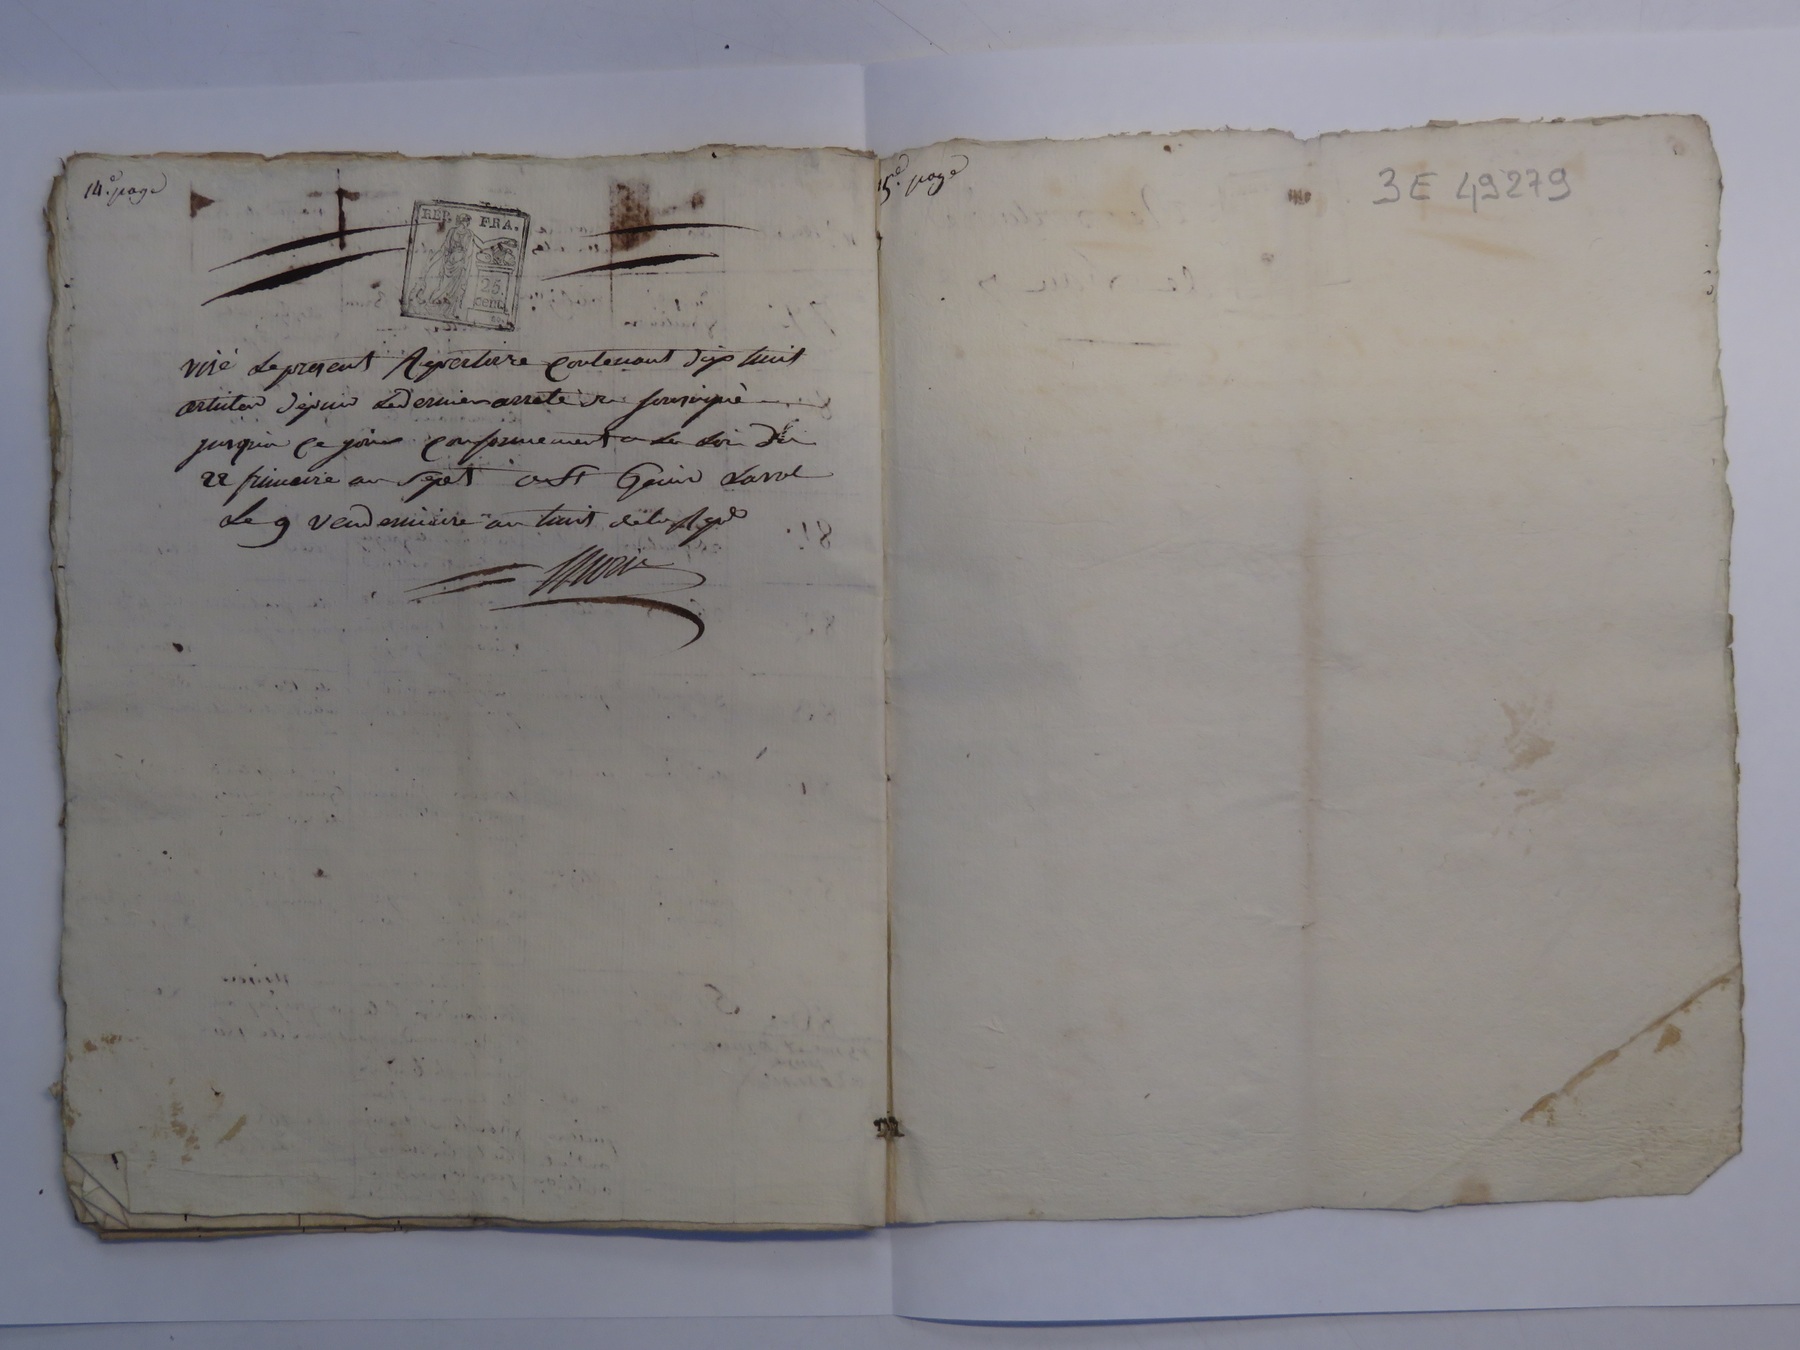 14.e page
REP. FRA.
25.
cent.
visé le present Repertoire Contenant dix huit
articles depuis Le dernier arreté du soussigné
jusqu'a ce jour conformement a la Loi du
22 frimaire an sept a St Genis Laval
Le 9 vendemiaire an huit de la Rep.
15.e page
3E 49279